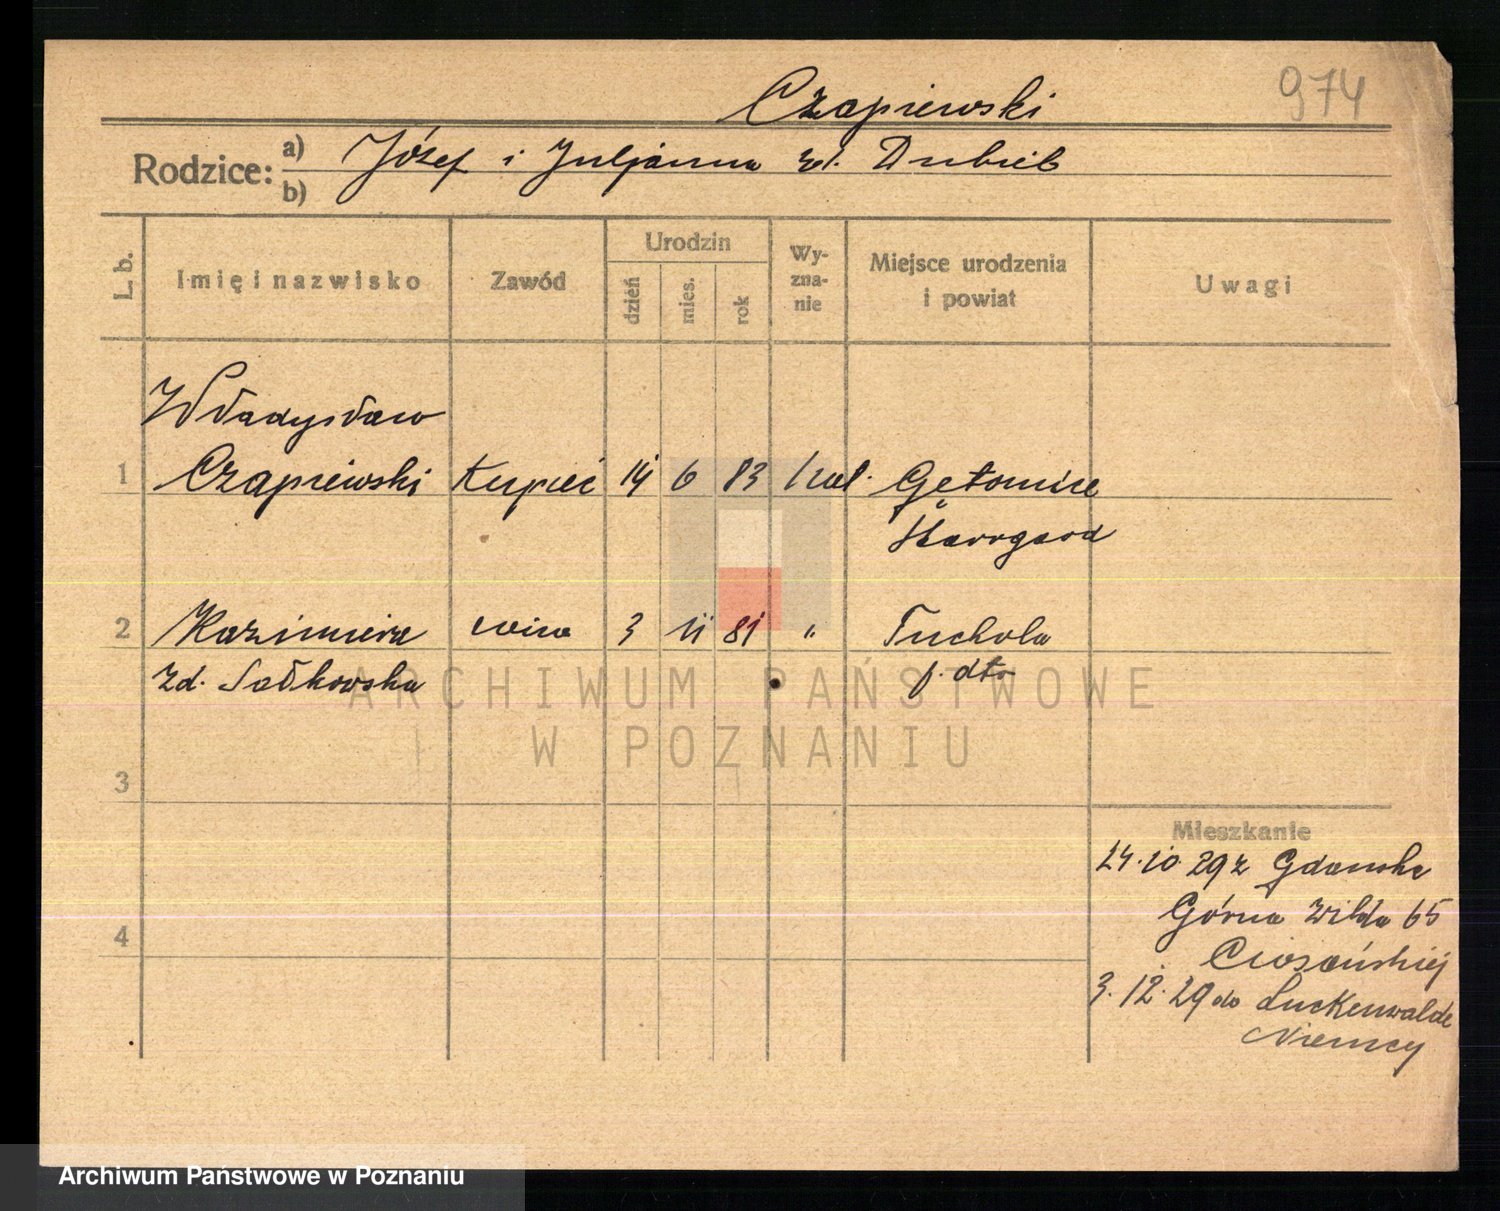 974
Czapiewski
Rodzice: a) Józef i Juljanna zd. Dubiel
b)
L. b. Imię i nazwisko Zawód Urodzin dzień mies. rok Wy-zna-nie Miejsce urodzenia i powiat Uwagi
Władysław
1 Czapiewski Kupiec 14 6 83 kat. Gętomie
Starogard
2 Kazimiera żona 3 11 81 " Tuchola
zd. Sałkowska p. dto
ARCHIWUM PAŃSTWOWE
W POZNANIU
3
4
Mieszkanie
24.10.29 z Gdańska
Górna Wilda 65
3.12.29 do Luckenwalde
Niemcy
Archiwum Państwowe w Poznaniu